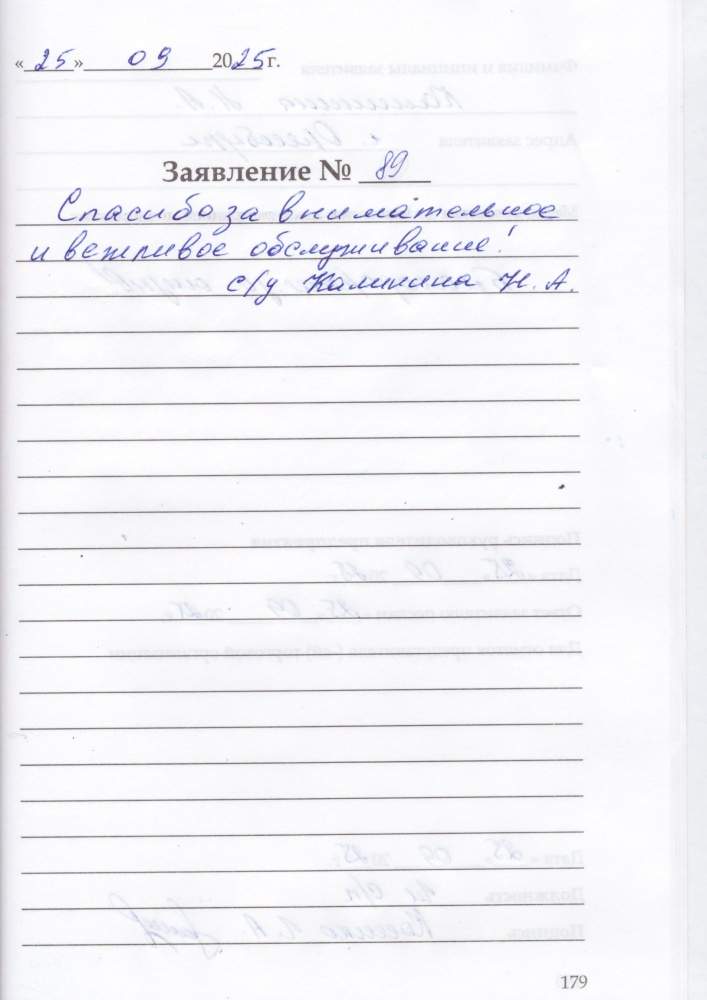 «25» 09 2025г.
Заявление № 89
Спасибо за внимательное
и вежливое обслуживание!
с/у Калинина Н. А.
179